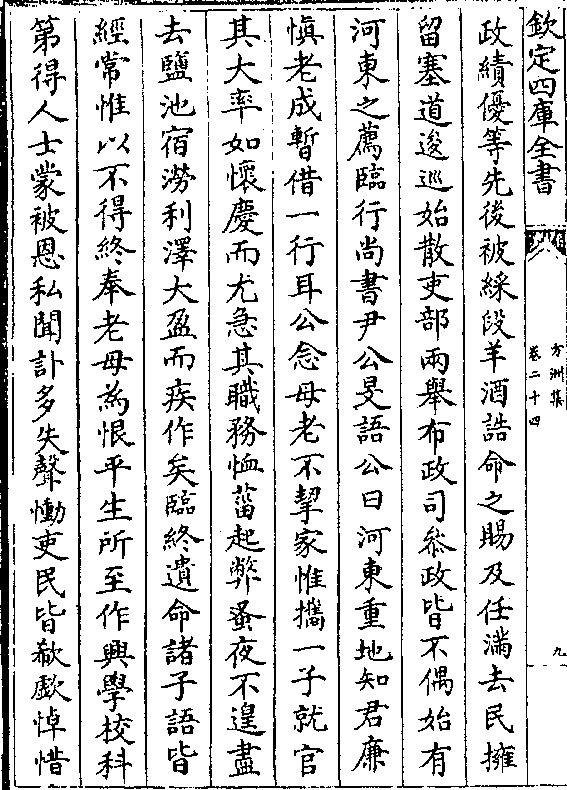 欽定四庫全書
方洲集
卷二十四
九
政績優等先後被綵段羊酒誥命之賜及任滿去民擁
留塞道逡巡始散吏部兩舉布政司叅政皆不偶始有
河東之薦臨行尚書尹公旻語公曰河東重地知君廉
慎老成暫借一行耳公念母老不挈家惟攜一子就官
其大率如懷慶而尤急其職務恤菑起弊蚤夜不遑盡
去鹽池宿澇利澤大盈而疾作矣臨終遺命諸子語皆
經常惟以不得終奉老母為恨平生所至作興學校科
第得人士蒙被恩私聞訃多失聲慟吏民皆欷歔悼惜